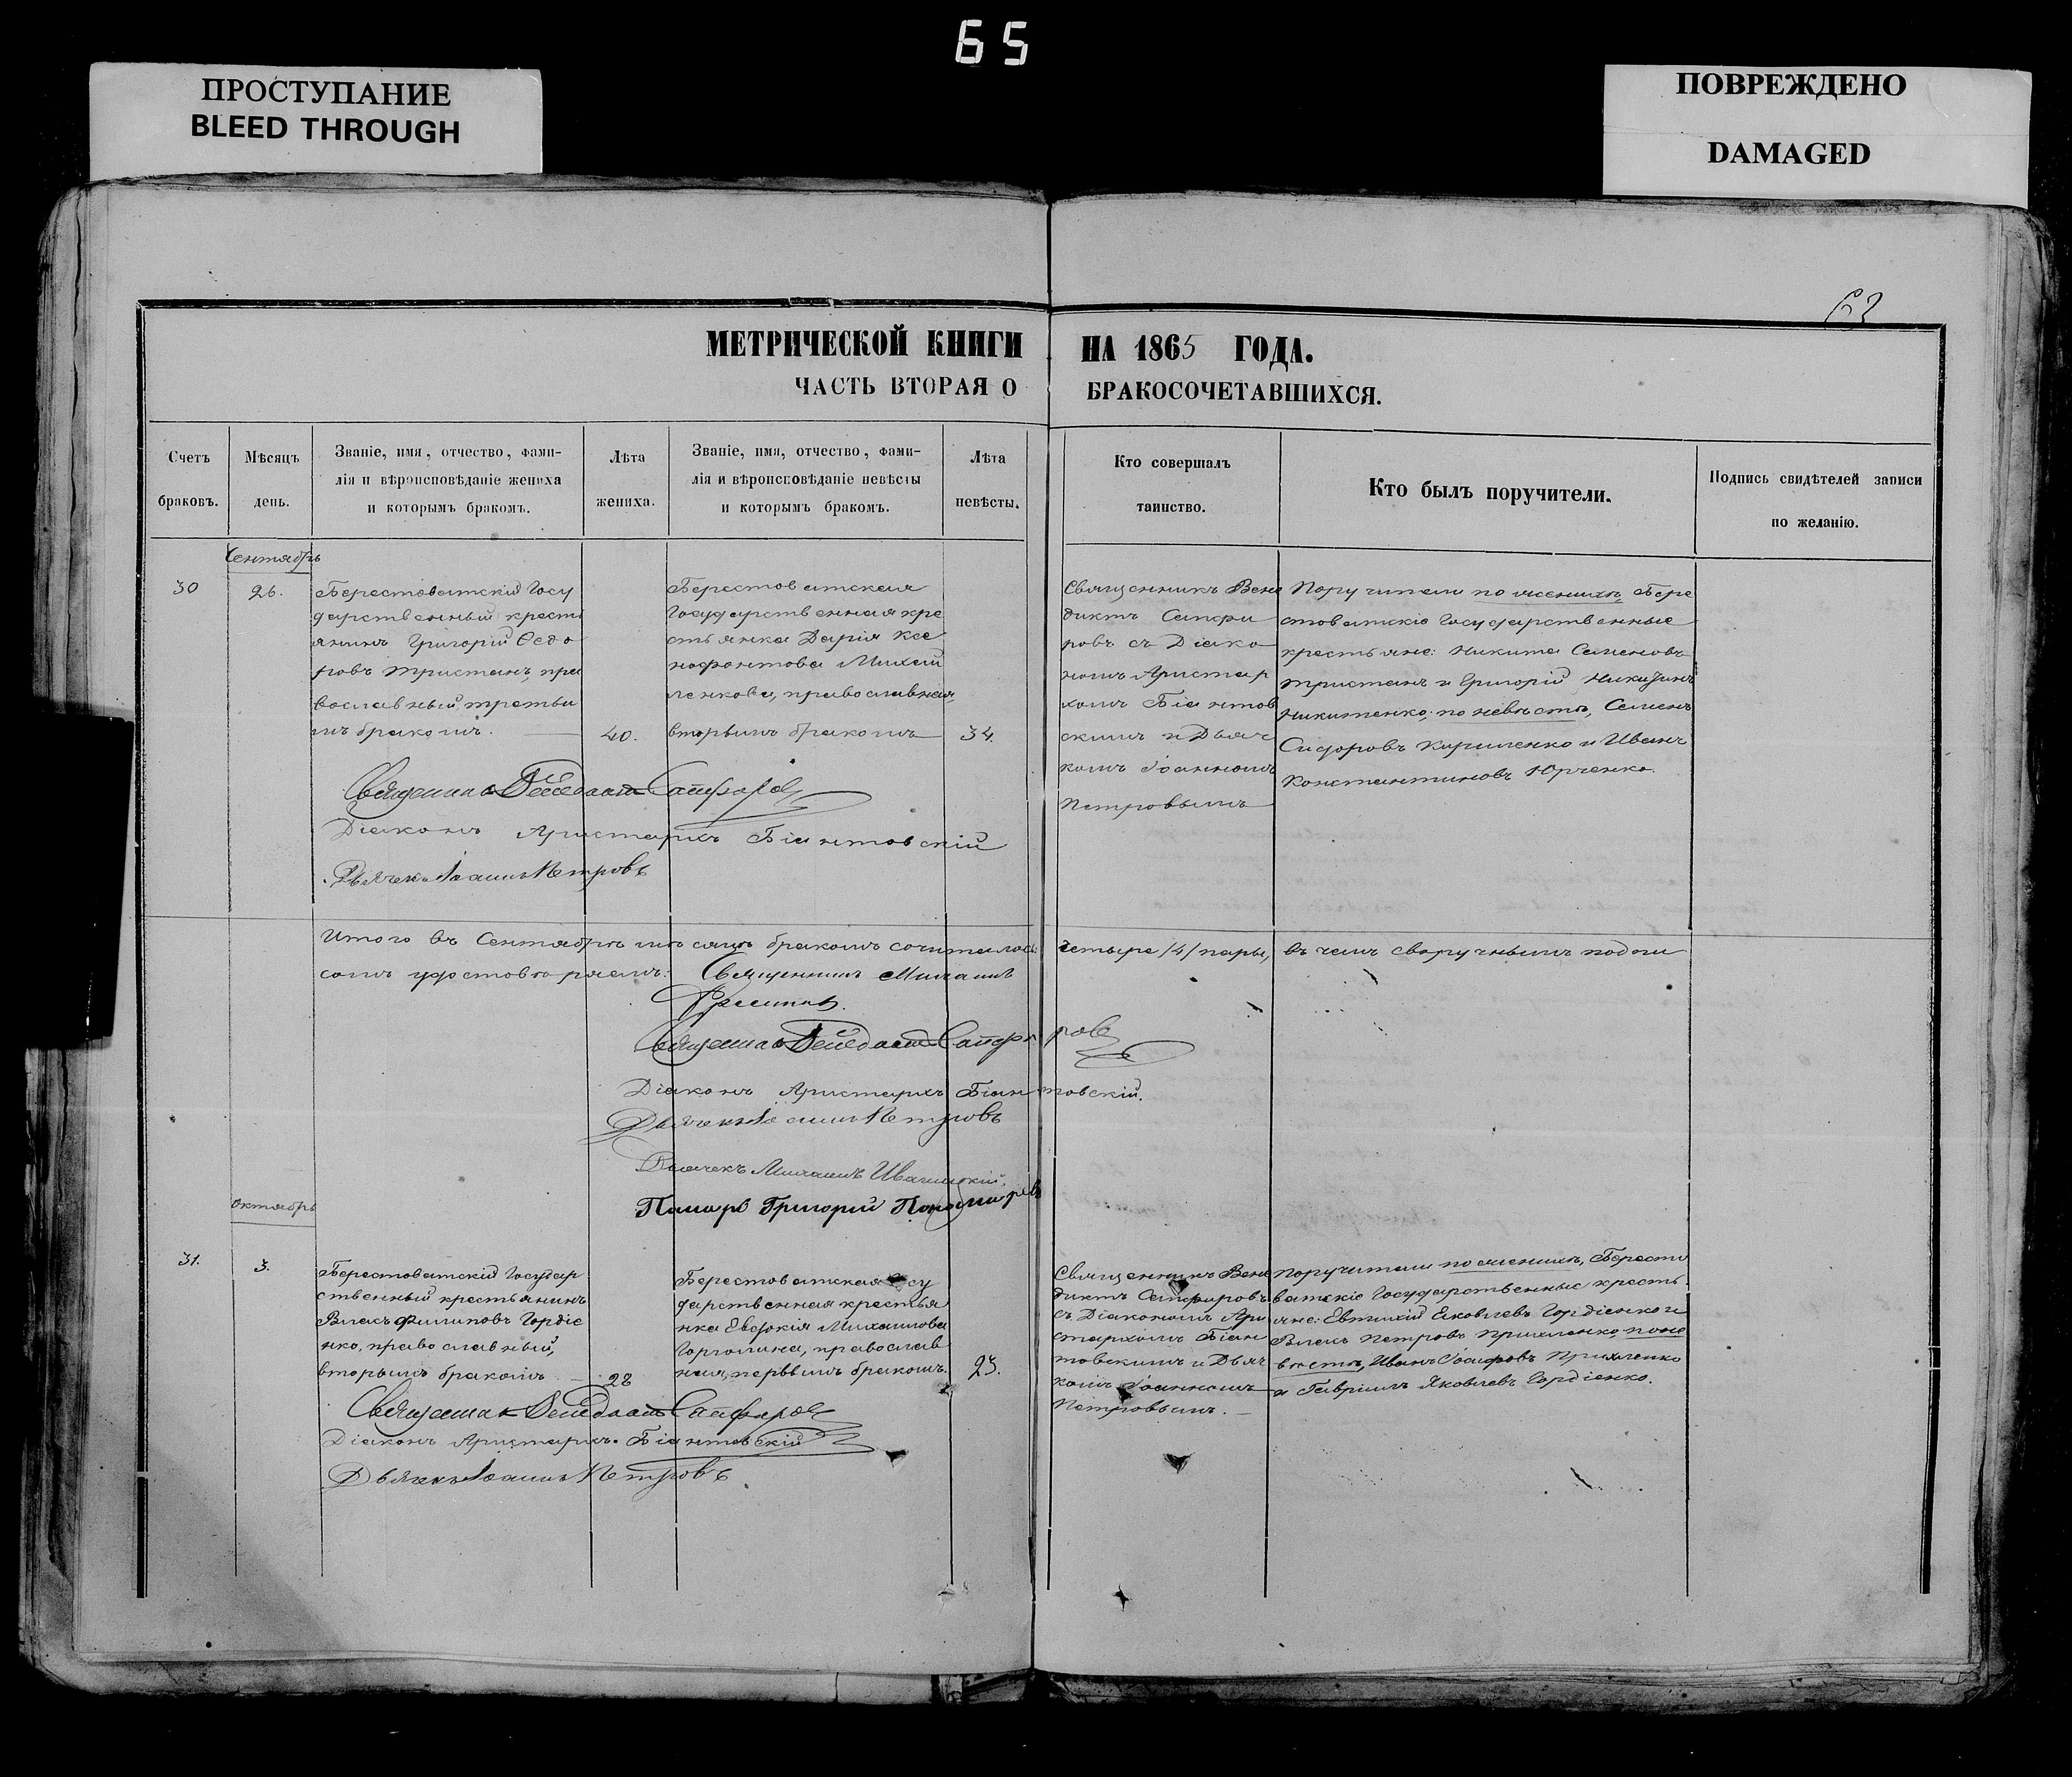 65
ПРОСТУПАНИЕ
BLEED THROUGH
ПОВРЕЖДЕНО
DAMAGED
63
МЕТРИЧЕСКОЙ КНИГИ НА 1865 ГОДА.
ЧАСТЬ ВТОРАЯ О БРАКОСОЧЕТАВШИХСЯ.
Счетъ
браковъ.
Мѣсяцъ
день.
Званіе, имя, отчество, фами-
лія и вѣроисповѣданіе жениха
и которымъ бракомъ.
Лѣта
жениха.
Званіе, имя, отчество, фами-
лія и вѣроисповѣданіе невѣсты
и которымъ бракомъ.
Лѣта
невѣсты.
Кто совершалъ
таинство.
Кто былъ поручители.
Подпись свидѣтелей записи
по желанію.
Сентябрь
30
26.
Берестоватскій Госу
дарственный кресть
янинъ Григорій Ѳедо
ровъ Тристанъ, пра
вославный, третьи
мъ бракомъ.
40.
Берестоватская
Государственная кре
стьянка Дарія Ксе
нофонтова Михай
ленкова, православная,
вторымъ бракомъ
34.
Священникъ Вене
диктъ Сапфи
ровъ съ Діако
номъ Аристар
хомъ Біантов
скимъ и Дьяч
комъ Іоанномъ
Петровымъ
Поручители по женихѣ, Бере
стоватскіе Государственные
крестьяне: Никита Семеновъ
Тристанъ и Григорій
Никитенко; по невѣстѣ, Семенъ
Сидоровъ Кириленко и Иванъ
Константиновъ Юрченко.
Священникъ Венедиктъ Сапфировъ
Діаконъ Аристархъ Біантовскій
Дьячекъ Іоаннъ Петровъ
Итого въ Сентябрѣ мѣсяцѣ бракомъ сочеталось четыре /4/ пары, въ чемъ своручнымъ подпи
сомъ удостовѣряемъ: Священникъ Михаилъ
Священникъ Венедиктъ Сапфировъ
Діаконъ Аристархъ Біантовскій.
Дьячекъ Іоаннъ Петровъ
Дьячекъ Михаилъ
Панамарь Григорій Пономаревъ
Октябрь
31.
3.
Берестоватскій Государ
ственный крестьянинъ
Власъ Филиповъ Гордіе
нко, православный,
вторымъ бракомъ
28
Берестоватская Госу
дарственная крестья
нка Евдокія Михаилова
православ
ная, первымъ бракомъ.
23.
Священникъ Вене
диктъ Сапфировъ
съ Діакономъ Ари
стархомъ Біан
товскимъ и Дьяч
комъ Іоанномъ
Петровымъ.
Поручители по женихѣ, Бересто
ватскіе Государственные кресть
яне: Евтихій Яковлевъ Гордіенко и
Власъ Петровъ Прихленко, по не
вѣстѣ, Иванъ Іосифовъ Прихленко
и Гавріилъ Яковлевъ Гордіенко.
Священникъ Венедиктъ Сапфировъ
Діаконъ Аристархъ Біантовскій
Дьячекъ Іоаннъ Петровъ